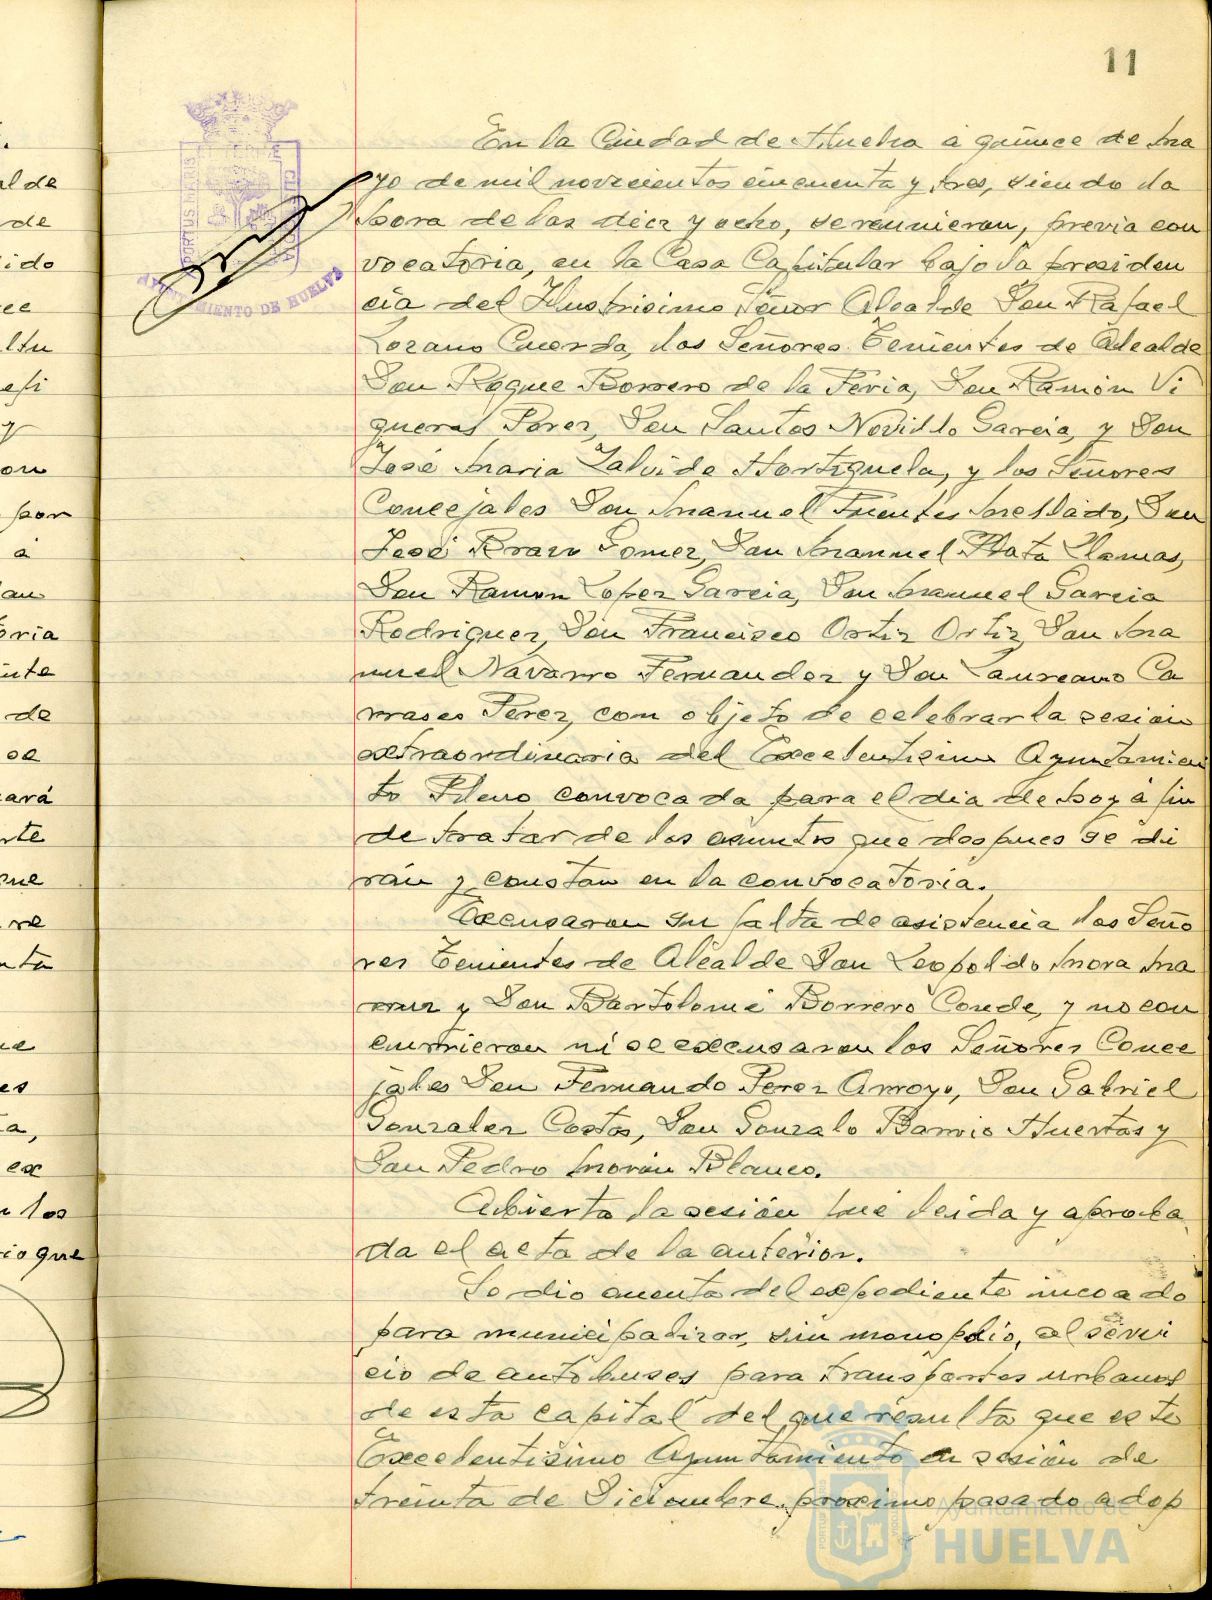 11
En la Ciudad de Huelva a quince de Ma
yo de mil novecientos cincuenta y tres, siendo la
hora de las diez y ocho, se reunieron, previa con
vocatoria, en la Casa Capitular bajo la presiden
cia del Ilustrisimo Señor Alcalde Don Rafael
Lozano Cuerda, los Señores Tenientes de Alcalde
Don Roque Borrero de la Feria, Don Ramón Vi
gueras Perez, Don Santos Novillo Garcia, y Don
José Maria Zalvide Hortiguela, y los Señores
Concejales Don Manuel Fuentes Mellado, Don
José Bravo Gomez, Don Manuel Plata Llamas,
Don Ramon Lopez Garcia, Don Manuel Garcia
Rodriguez, Don Francisco Ortiz Ortiz, Don Ma
nuel Navarro Fernandez y Don Laureano Ca
rrasco Perez, con objeto de celebrar la sesión
extraordinaria del Excelentisimo Ayuntamien
to Pleno convocada para el dia de hoy á fin
de tratar de los asuntos que despues se di
rán y constan en la convocatoria.
Excusaron su falta de asistencia los Seño
res Tenientes de Alcalde Don Leopoldo Mora Ma
y Don Bartolomé Borrero Conde, y no con
currieron ni se excusaron los Señores Conce
jales Don Fernando Perez Arroyo, Don Gabriel
Gonzalez Costas, Don Gonzalo Barrio Huertas y
Don Pedro Morón Blanco.
Abierta la sesión fué leida y aproba
da el acta de la anterior.
Se dio cuenta del expediente incoado
para municipalizar, sin monopolio, el servi
cio de autobuses para transportes urbanos
de esta capital del que resulta que este
Excelentisimo Ayuntamiento en sesión de
treinta de Diciembre proximo pasado adop
PORTUS MARIS
AYUNTAMIENTO DE HUELVA
Ayuntamiento de
HUELVA